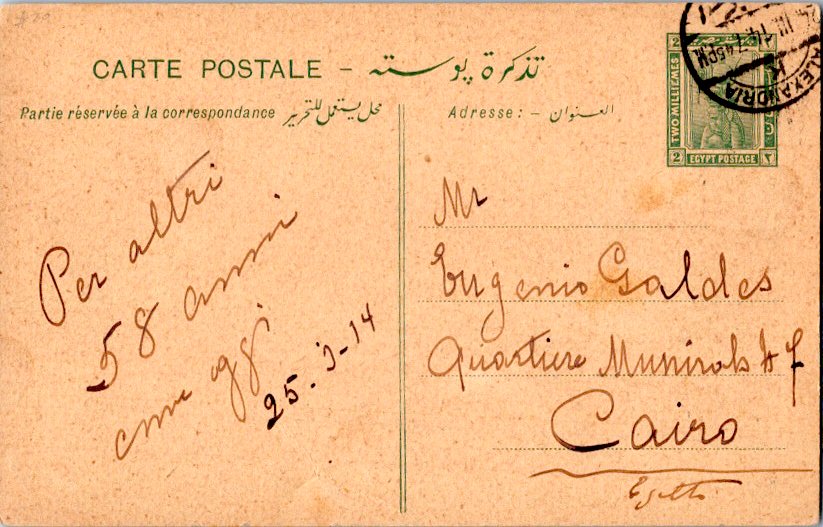 CARTE POSTALE - تذكرة پوسته
Partie réservée à la correspondance محل يستعمل للتحرير
Adresse: - العنوان
2 2
TWO MILLIEMES
2 EGYPT POSTAGE ٢
ALEXANDRIA
K
24. III. 14. 7 45PM
Per altri
58 anni
come oggi
25-3-14
Mr
Eugenio Galdes
Quartiere
Cairo
Egitto